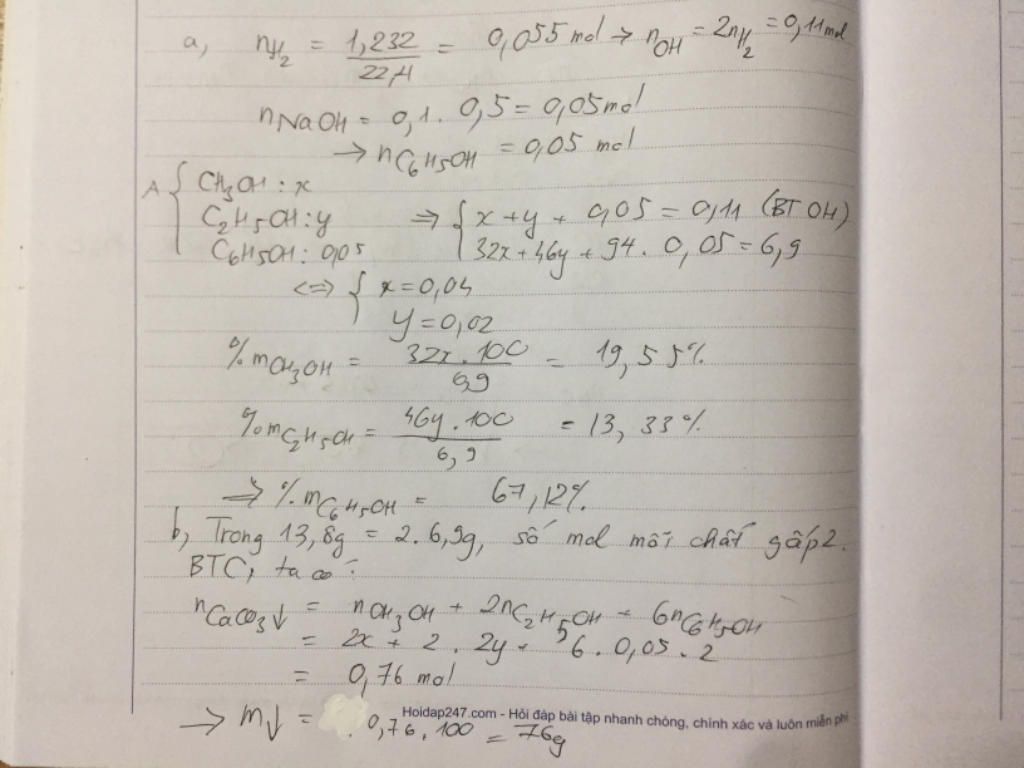 a, nH2 = 1,232/22,4 = 0,055 mol → nOH = 2nH2 = 0,11 mol
nNaOH = 0,1 . 0,5 = 0,05 mol
→ nC6H5OH = 0,05 mol
A { CH3OH : x
C2H5OH : y ⇒ { x + y + 0,05 = 0,11 (BT OH)
C6H5OH : 0,05 32x + 46y + 94 . 0,05 = 6,9
<=> { x = 0,04
y = 0,02
%mCH3OH = 32x . 100/6,9 = 19,55%
%mC2H5OH = 46y . 100/6,9 = 13,33%
⇒ %mC6H5OH = 67,12%
b, Trong 13,8g = 2 . 6,9g, số mol mỗi chất gấp 2.
BTC, ta có:
nCaCO3↓ = nCH3OH + 2nC2H5OH + 6nC6H5OH
= 2x + 2 . 2y + 6 . 0,05 . 2
= 0,76 mol
Hoidap247.com - Hỏi đáp bài tập nhanh chóng, chính xác và luôn miễn phí
→ m↓ = 0,76 . 100 = 76g